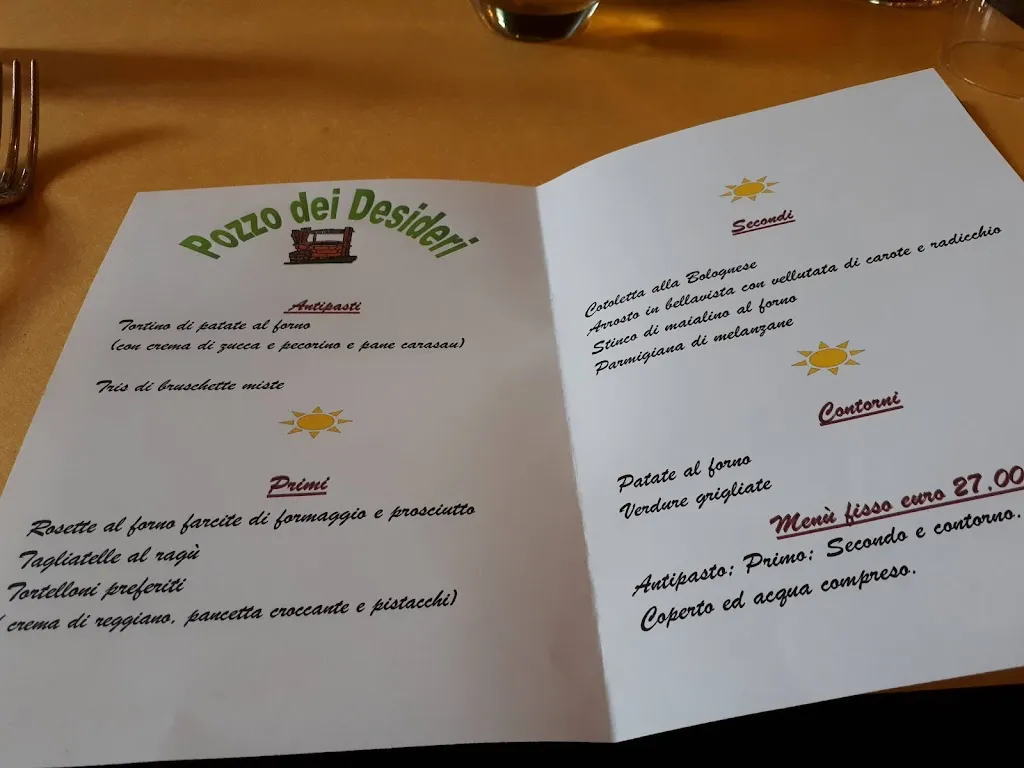 Pozzo dei Desideri
Antipasti
Tortino di patate al forno
(con crema di zucca e pecorino e pane carasau)
Tris di bruschette miste
Primi
Rosette al forno farcite di formaggio e prosciutto
Tagliatelle al ragù
Tortelloni preferiti
( crema di reggiano, pancetta croccante e pistacchi)
Secondi
Cotoletta alla Bolognese
Arrosto in bellavista con vellutata di carote e radicchio
Stinco di maialino al forno
Parmigiana di melanzane
Contorni
Patate al forno
Verdure grigliate
Menù fisso euro 27.00
Antipasto; Primo; Secondo e contorno.
Coperto ed acqua compreso.